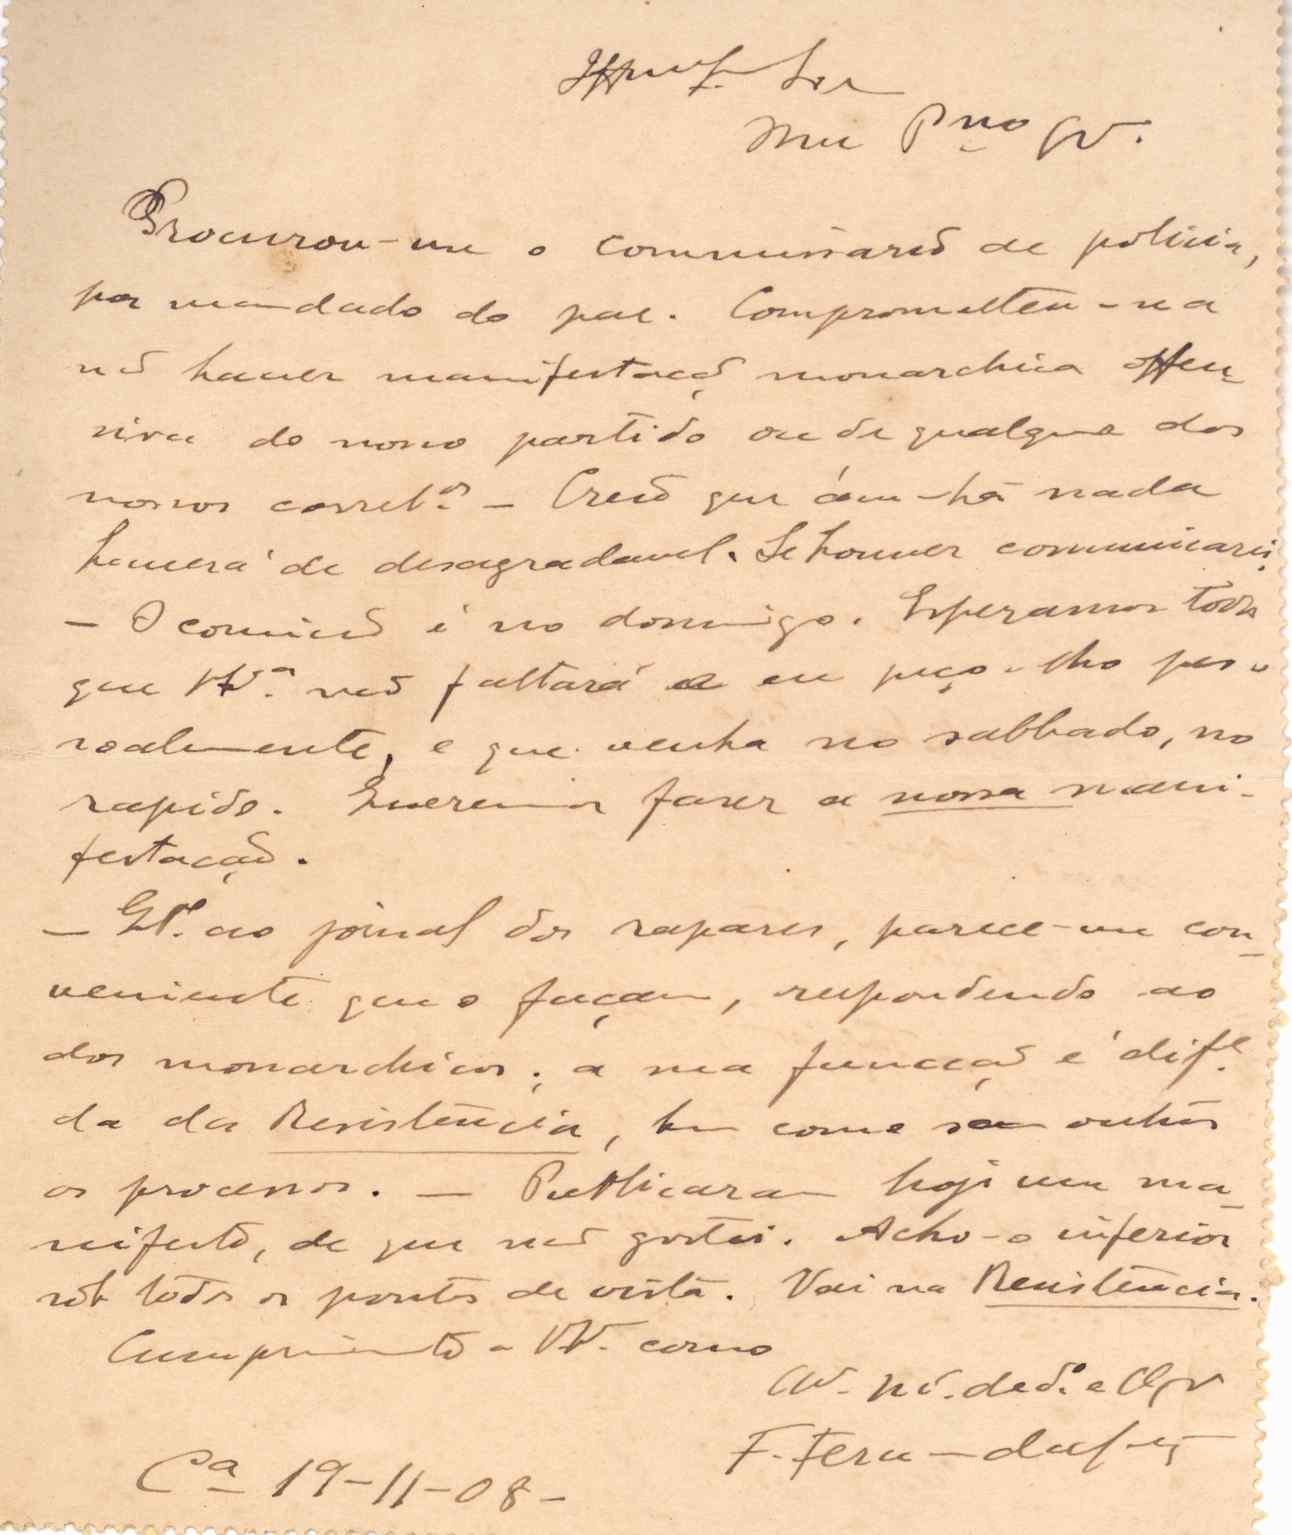 Procurou-me o commissario de policia,
por mandado do pae. Comprometteu-se a
não haver manifestação monarchica offen-
siva do nosso partido ou de qualquer dos
nossos correlig.os – Creio que ámanhã nada
haverá de desagradavel. Se houver communicarei.
– O comicio é no domingo. Esperamos todos
que V.a não faltará e eu peço-lho pes-
soalmente, e que venha no sabbado, no
rapido. Queremos fazer a nossa mani-
festação.
– ao jornal dos rapazes, parece-me con-
veniente que o façam, respondendo ao
dos monarchicos; a sua funcção é dif.e
da da Resistencia, bem como sam outros
os processos. – Publicaram hoje um ma-
nifesto, de que não gostei. Acho-o inferior
sob todos os pontos de vista. Vai na Resistencia.
Cumprimento a V. como
F. Fernandes
C.a 19-11-08-